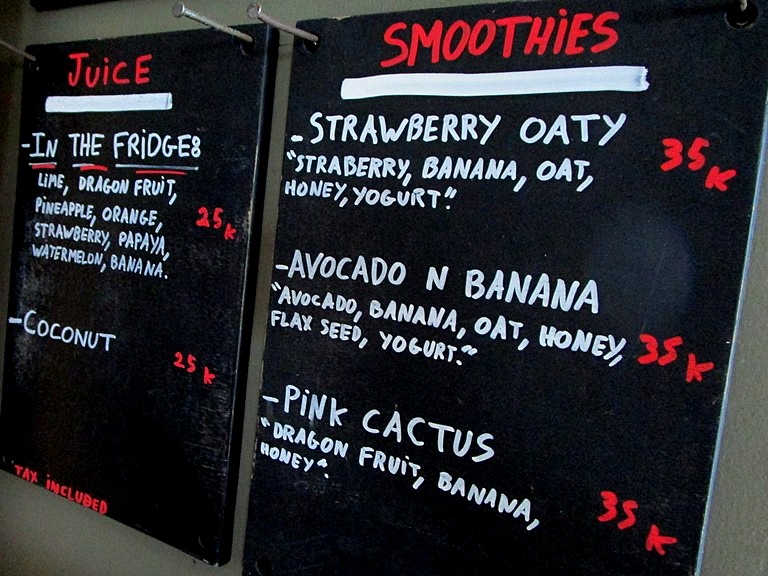 JUiCE
-IN THE FRiDGE:
LIME, DRAGON FRUIT,
PINEAPPLE, ORANGE,
STRAWBERRY, PAPAYA,
WATERMELON, BANANA.
25K
-COCONUT
25K
TAX INCLUDED
SMOOTHiES
-STRAWBERRY OATY
35K
"STRABERRY, BANANA, OAT,
HONEY, YOGURT".
-AVOCADO N BANANA
"AVOCADO, BANANA, OAT, HONEY,
35K
FLAX SEED, YOGURT."
-PiNK CACTUS
"DRAGON FRUIT, BANANA,
HONEY".
35K